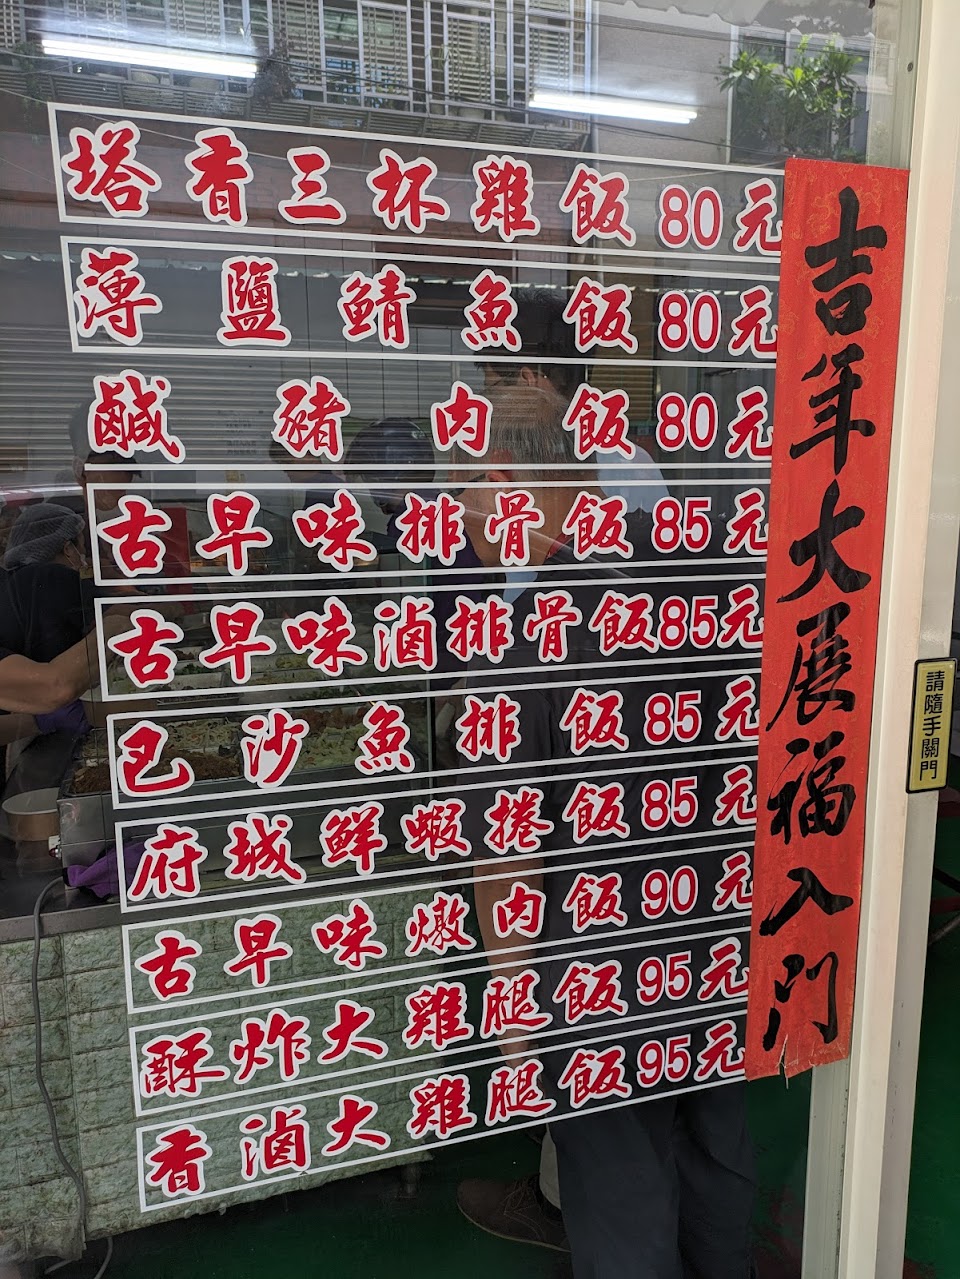 塔香三杯雞飯80元
薄鹽鯖魚飯80元
鹹豬肉飯80元
古早味排骨飯85元
古早味滷排骨飯85元
巴沙魚排飯85元
府城鮮蝦捲飯85元
古早味爌肉飯90元
酥炸大雞腿飯95元
香滷大雞腿飯95元
吉年大展福入門
請隨手關門